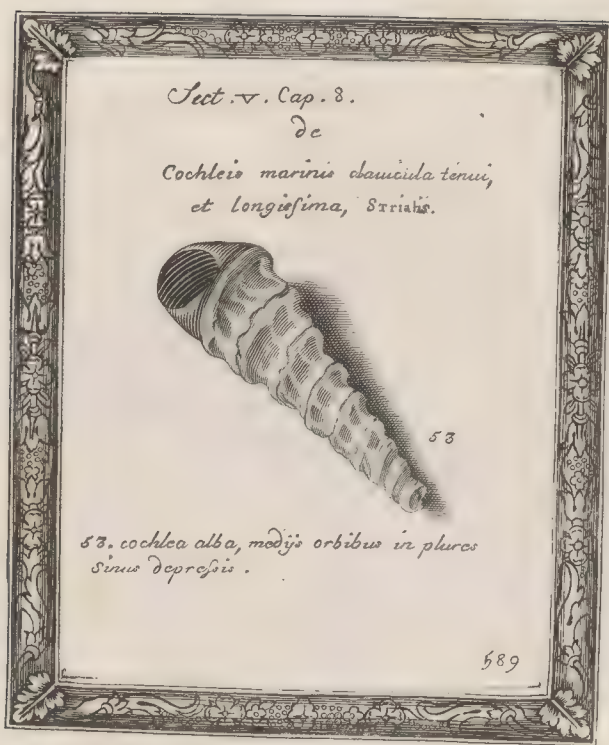 Sect. v. Cap. 8.
de
Cochleis marinis clavicula tenui,
et longissima, Striatis.
53
53. cochlea alba, medijs orbibus in plures
sinus depressis.
589